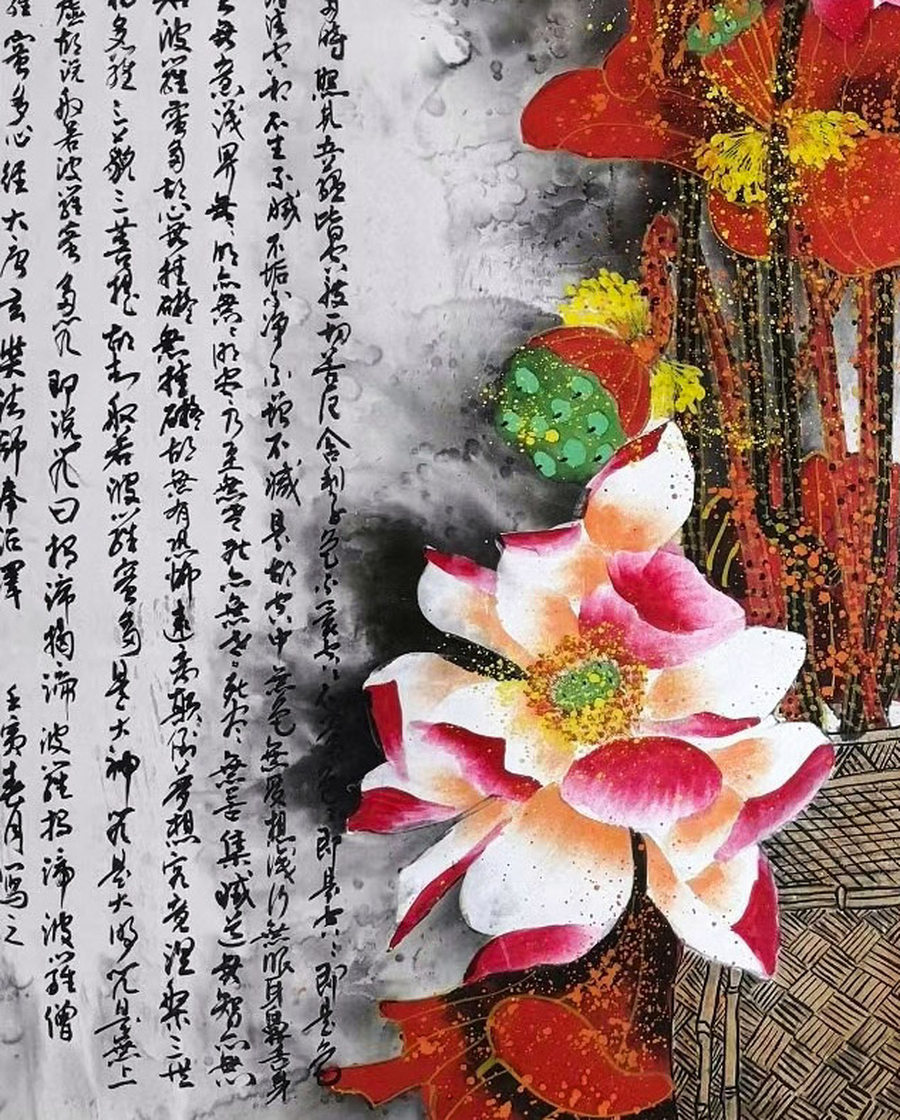 時照見五蘊皆空度一切苦厄舍利子色不異空〻不異色〻即是空〻即是色
諸法空相不生不滅不垢不淨不增不減是故空中無色無受想識行無眼耳鼻舌身
至無意識界無〻明亦無〻明盡乃至無老死亦無老〻死盡〻無苦集滅道無智亦無
波羅蜜多故心無挂礙無挂礙故無有恐怖遠離顛倒夢想究竟涅槃三世
多羅三藐三菩提故知般若波羅蜜多是大神咒是大明咒是無上
虛故說般若波羅蜜多咒即說咒曰揭諦揭諦波羅揭諦波羅僧
羅蜜多心經大唐玄奘法師奉詔譯 壬寅春月寫之